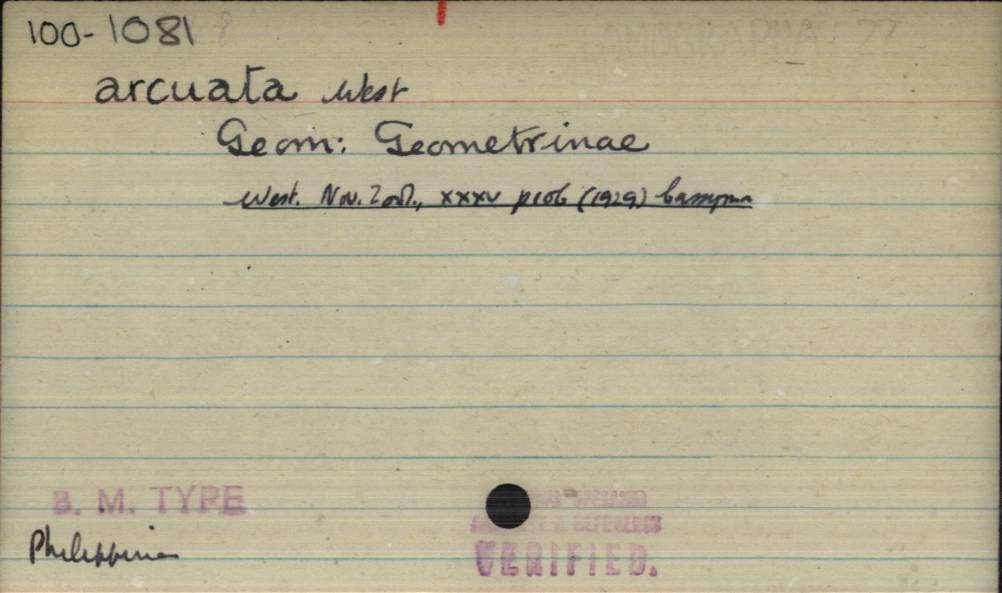 100-1081
arcuata West
Geom: Geometrinae
West. Nov. Zool., xxxv p106 (1929)
B. M. TYPE
REFERENCE
VERIFIED.
Philippines